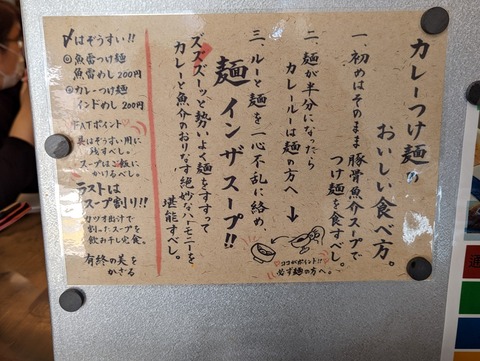 カレーつけ麺の
おいしい食べ方。
一、初めはそのまま豚骨魚介スープで
つけ麺を食すべし。
二、麺が半分になったら
カレールーは麺の方へ↓
ココがポイント!!
必ず麺の方へ。
三、ルーと麺を一心不乱に絡め
麺インザスープ!!
ズズズーッと勢いよく麺をすすって
カレーと魚介のおりなす絶妙なハーモニーを
堪能すべし。
〆はぞうすい!!
◎魚雷つけ麺
魚雷めし200円
◎カレーつけ麺
インドめし200円
具はぞうすい用に
残すべし。
スープはご飯に
かけるべし。
ラストは
スープ割り!!
カツオ出汁で
割ったスープを
飲み干し完食。
有終の美を
かざる